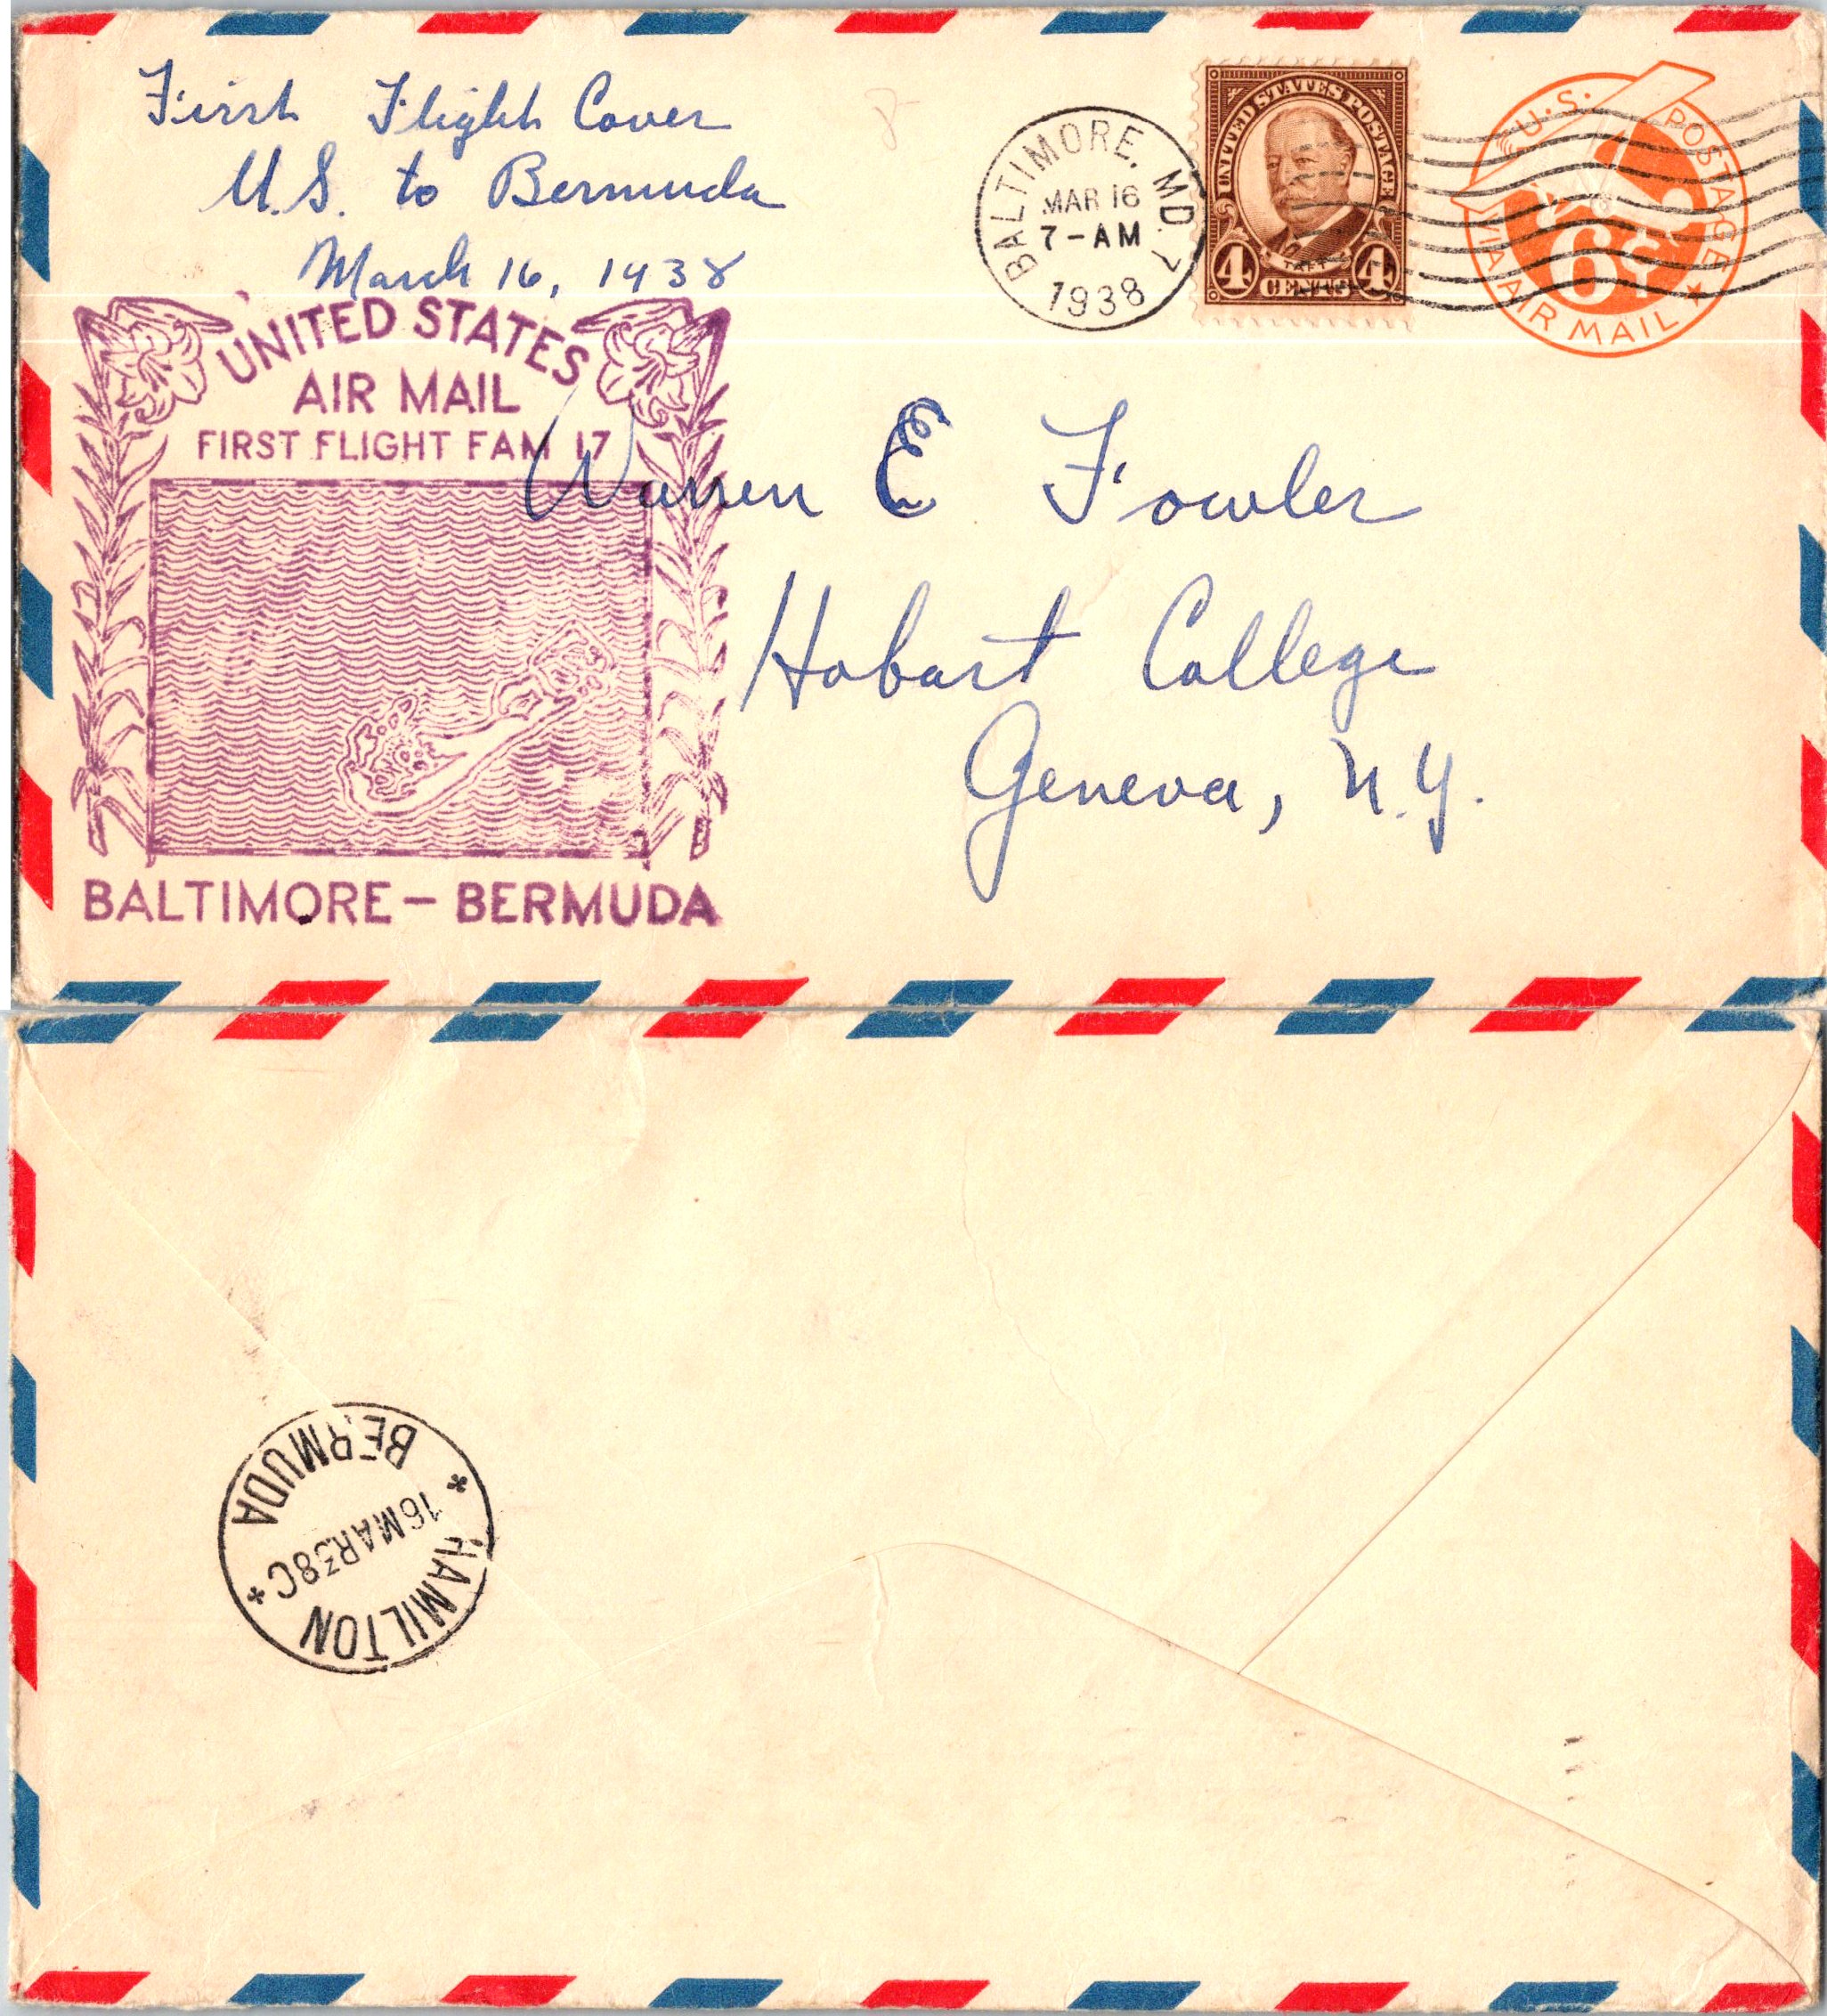 First Flight Cover
U.S. to Bermuda
March 16, 1938
BALTIMORE, MD. 7
MAR 16
7-AM
1938
UNITED STATES POSTAGE
TAFT
4 CENTS 4
U.S. POSTAGE
6¢
VIA AIR MAIL
UNITED STATES
AIR MAIL
FIRST FLIGHT FAM 17
BALTIMORE – BERMUDA
Warren E Fowler
Hobart College
Geneva, N.Y.
HAMILTON
16MAR38C
BERMUDA